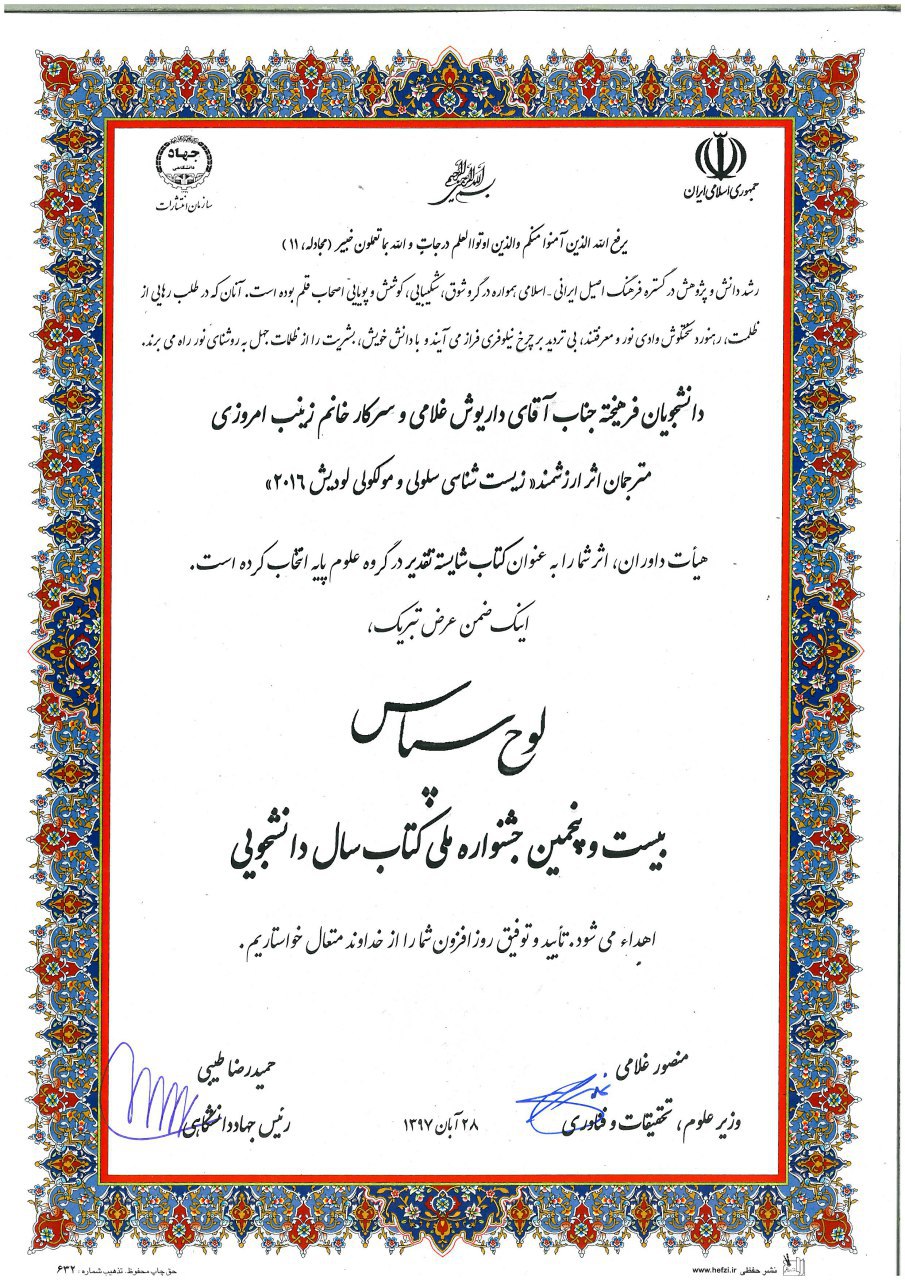 جمهوری اسلامی ایران
بسم الله الرحمن الرحیم
جهاد
دانشگاهی
سازمان انتشارات
یرفع الله الذین آمنوا منکم والذین اوتوا العلم درجات و الله بما تعملون خبیر (مجادله، ۱۱)
رشد دانش و پژوهش در گستره فرهنگ اصیل ایرانی - اسلامی همواره در گرو شوق، شکیبایی، کوشش و پویایی اصحاب قلم بوده است. آنان که در طلب رهایی از
ظلمت، رهنورد سختکوش وادی نور و معرفتند، بی تردید بر چرخ نیلوفری فراز می آیند و با دانش خویش، بشریت را از ظلمات جهل به روشنای نور راه می برند.
دانشجویان فرهیخته جناب آقای داریوش غلامی و سرکار خانم زینب امروزی
مترجمان اثر ارزشمند «زیست شناسی سلولی و مولکولی لودیش ۲۰۱۶»
هیأت داوران، اثر شما را به عنوان کتاب شایسته تقدیر در گروه علوم پایه انتخاب کرده است.
اینک ضمن عرض تبریک،
لوح سپاس
بیست و پنجمین جشنواره ملی کتاب سال دانشجویی
اهداء می شود. تأیید و توفیق روزافزون شما را از خداوند متعال خواستاریم.
منصور غلامی
وزیر علوم، تحقیقات و فناوری
۲۸ آبان ۱۳۹۷
حمیدرضا طیبی
رئیس جهاد دانشگاهی
نشر حفظی www.hefzi.ir
حق چاپ محفوظ. تذهیب شماره: ۶۳۲